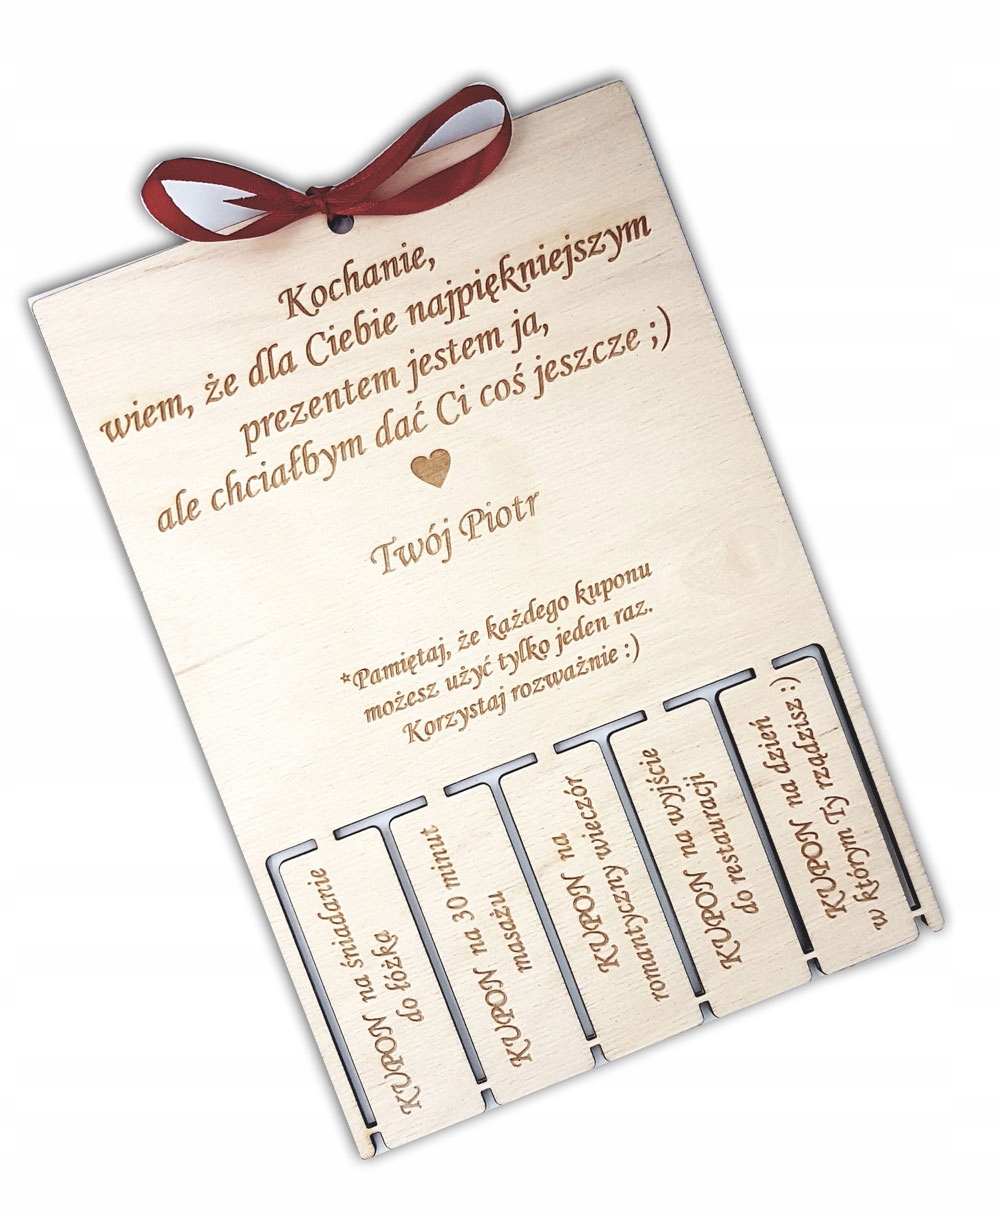 Kochanie,
wiem, że dla Ciebie najpiękniejszym
prezentem jestem ja,
ale chciałbym dać Ci coś jeszcze ;)
Twój Piotr
*Pamiętaj, że każdego kuponu
możesz użyć tylko jeden raz.
Korzystaj rozważnie :)
KUPON na śniadanie
do łóżka
KUPON na 30 minut
masażu
KUPON na
romantyczny wieczór
KUPON na wyjście
do restauracji
KUPON na dzień
w którym Ty rządzisz :)